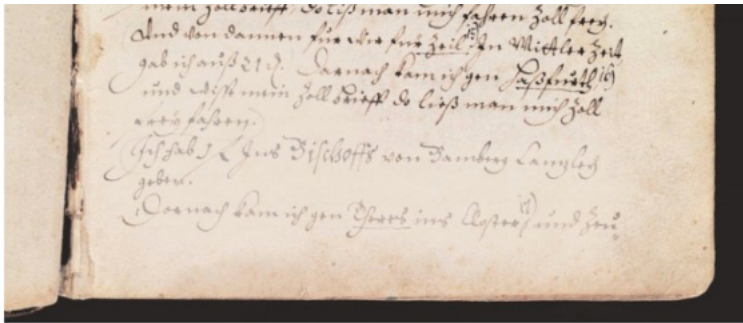 mein Zollbrieff, do ließ man mich fahren Zoll frey.
Und von dannen fur wir für Zeil 15) In Mittler Zeit
gab ich auß 21 ₰. Darnach kam ich gen Haßfurth 16)
und wisß mein Zoll brieff do ließ man mich Zoll
frey fahren.
Ich hab 1 f Ins Bischoffs von Bamberg Canzley
geben.
Darnach kam ich gen Theres ins Closter 17) und Zeu-